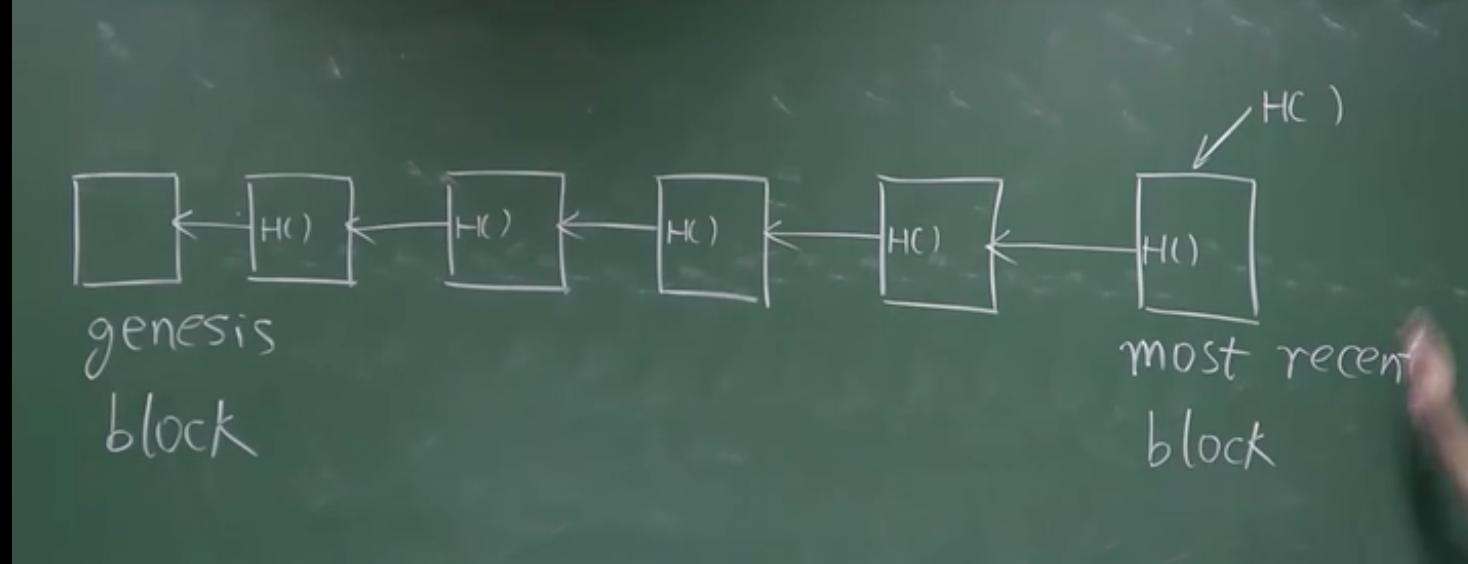 H( )
H( ) H( ) H( ) H( ) H( )
genesis
block
most recent
block